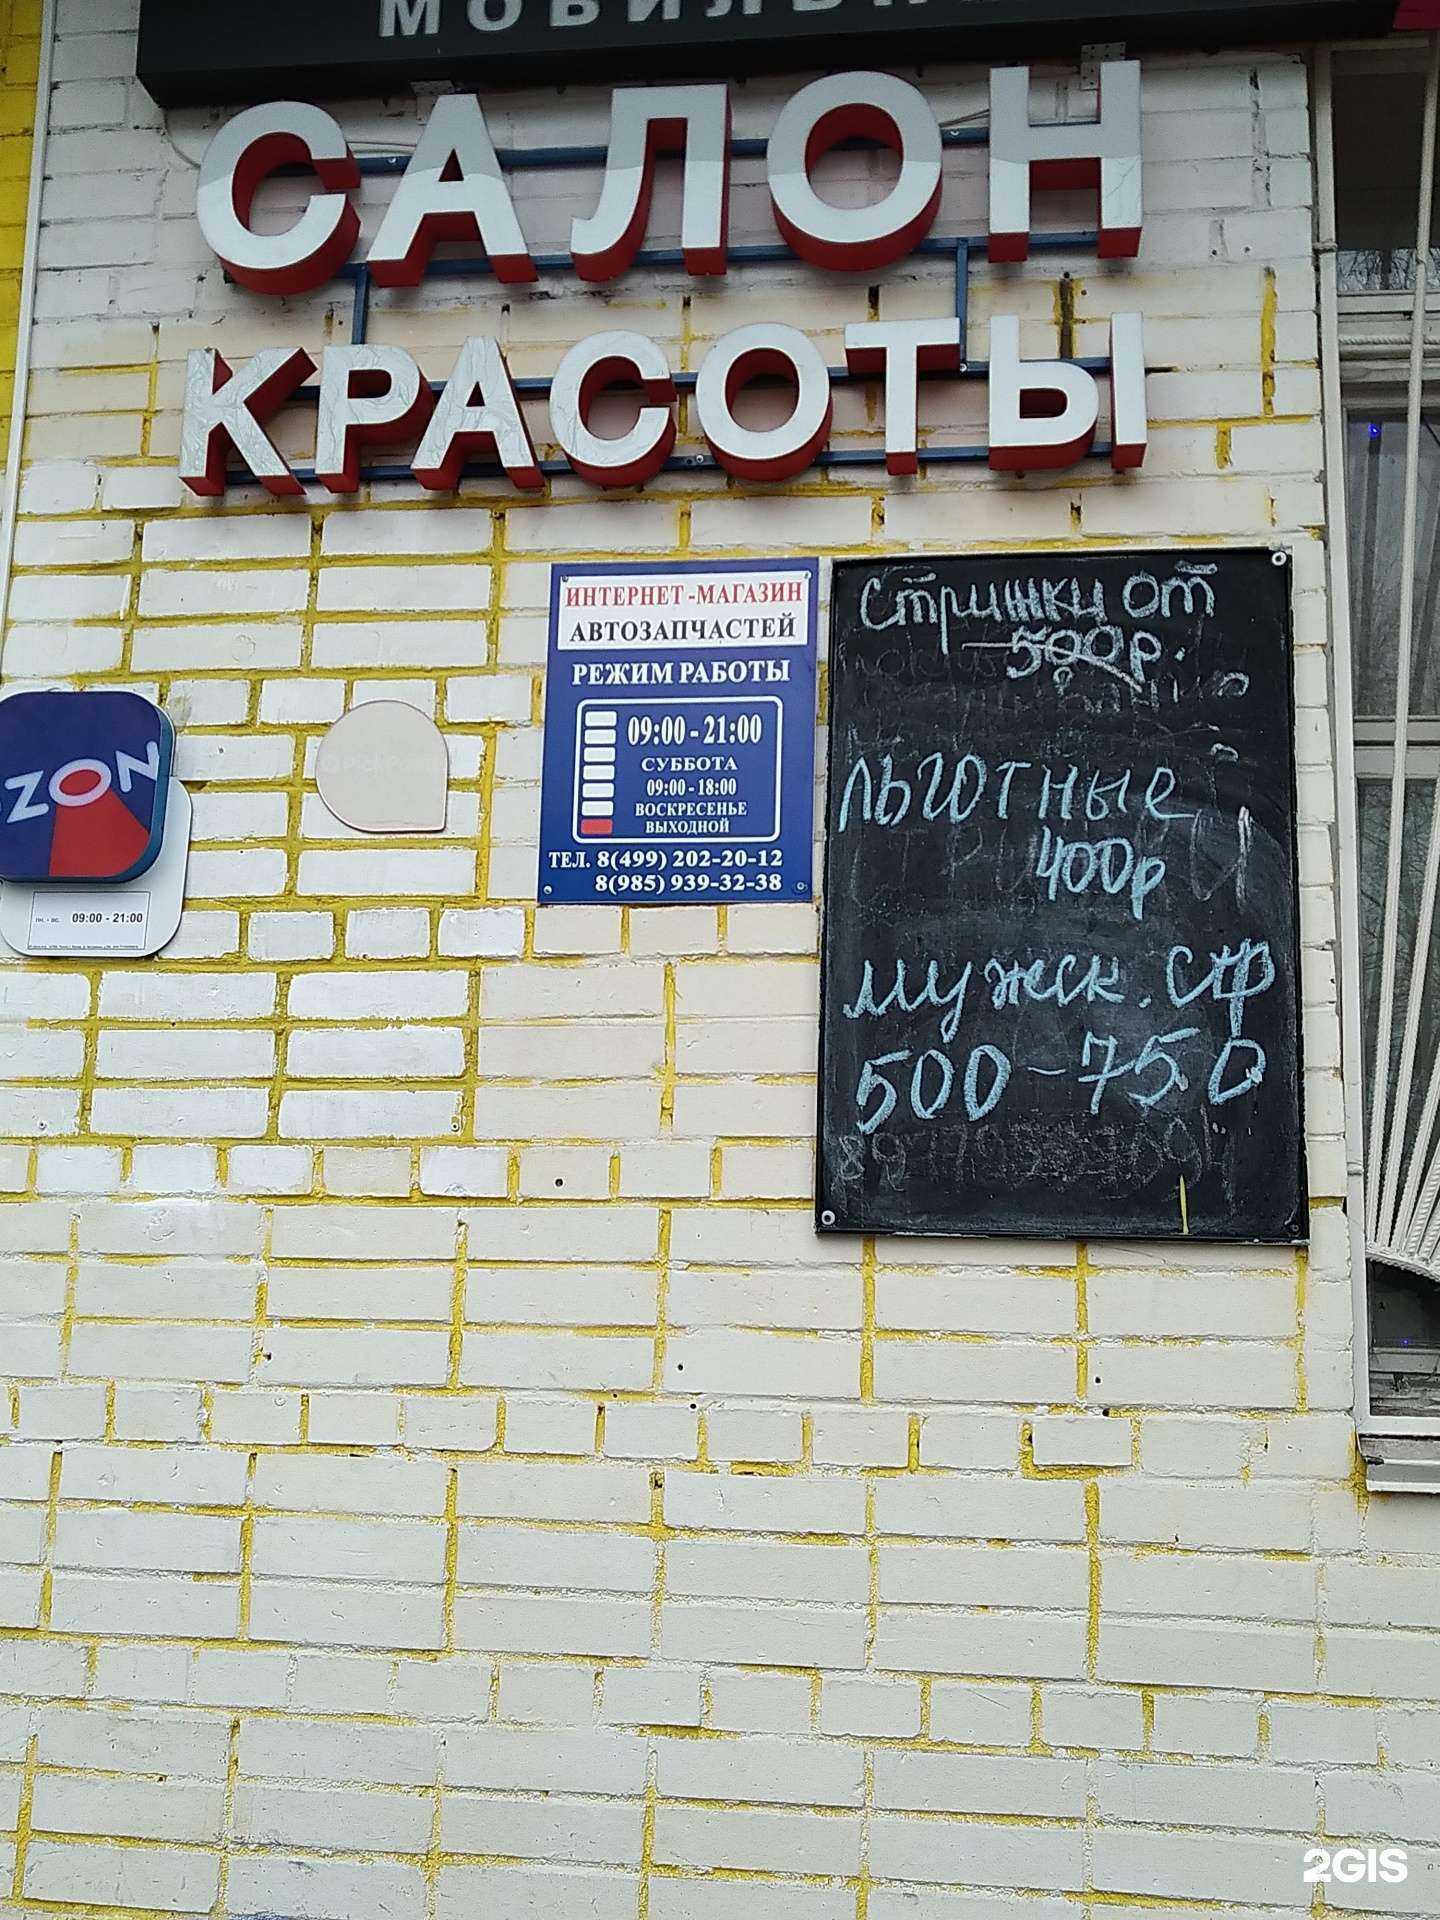 САЛОН
КРАСОТЫ
ИНТЕРНЕТ-МАГАЗИН
АВТОЗАПЧАСТЕЙ
РЕЖИМ РАБОТЫ
09:00 - 21:00
СУББОТА
09:00 - 18:00
ВОСКРЕСЕНЬЕ
ВЫХОДНОЙ
ТЕЛ. 8(499) 202-20-12
8(985) 939-32-38
OZON
пн. - вс. 09:00 - 21:00
Стрижки от
500р.
Льготные
400р
мужск. стр
500-750
2GIS